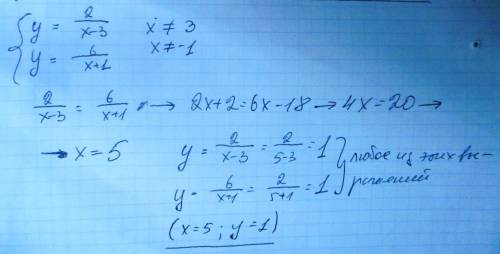 { y = 2/(x-3)   x ≠ 3
y = 6/(x+1)   x ≠ -1
2/(x-3) = 6/(x+1) → 2x+2=6x-18 → 4x=20 →
→ x=5   y = 2/(x-3) = 2/(5-3) = 1 } любое из этих вы-
y - 6/(x+1) = 2/(5+1) = 1   ражений
(x=5; y=1)